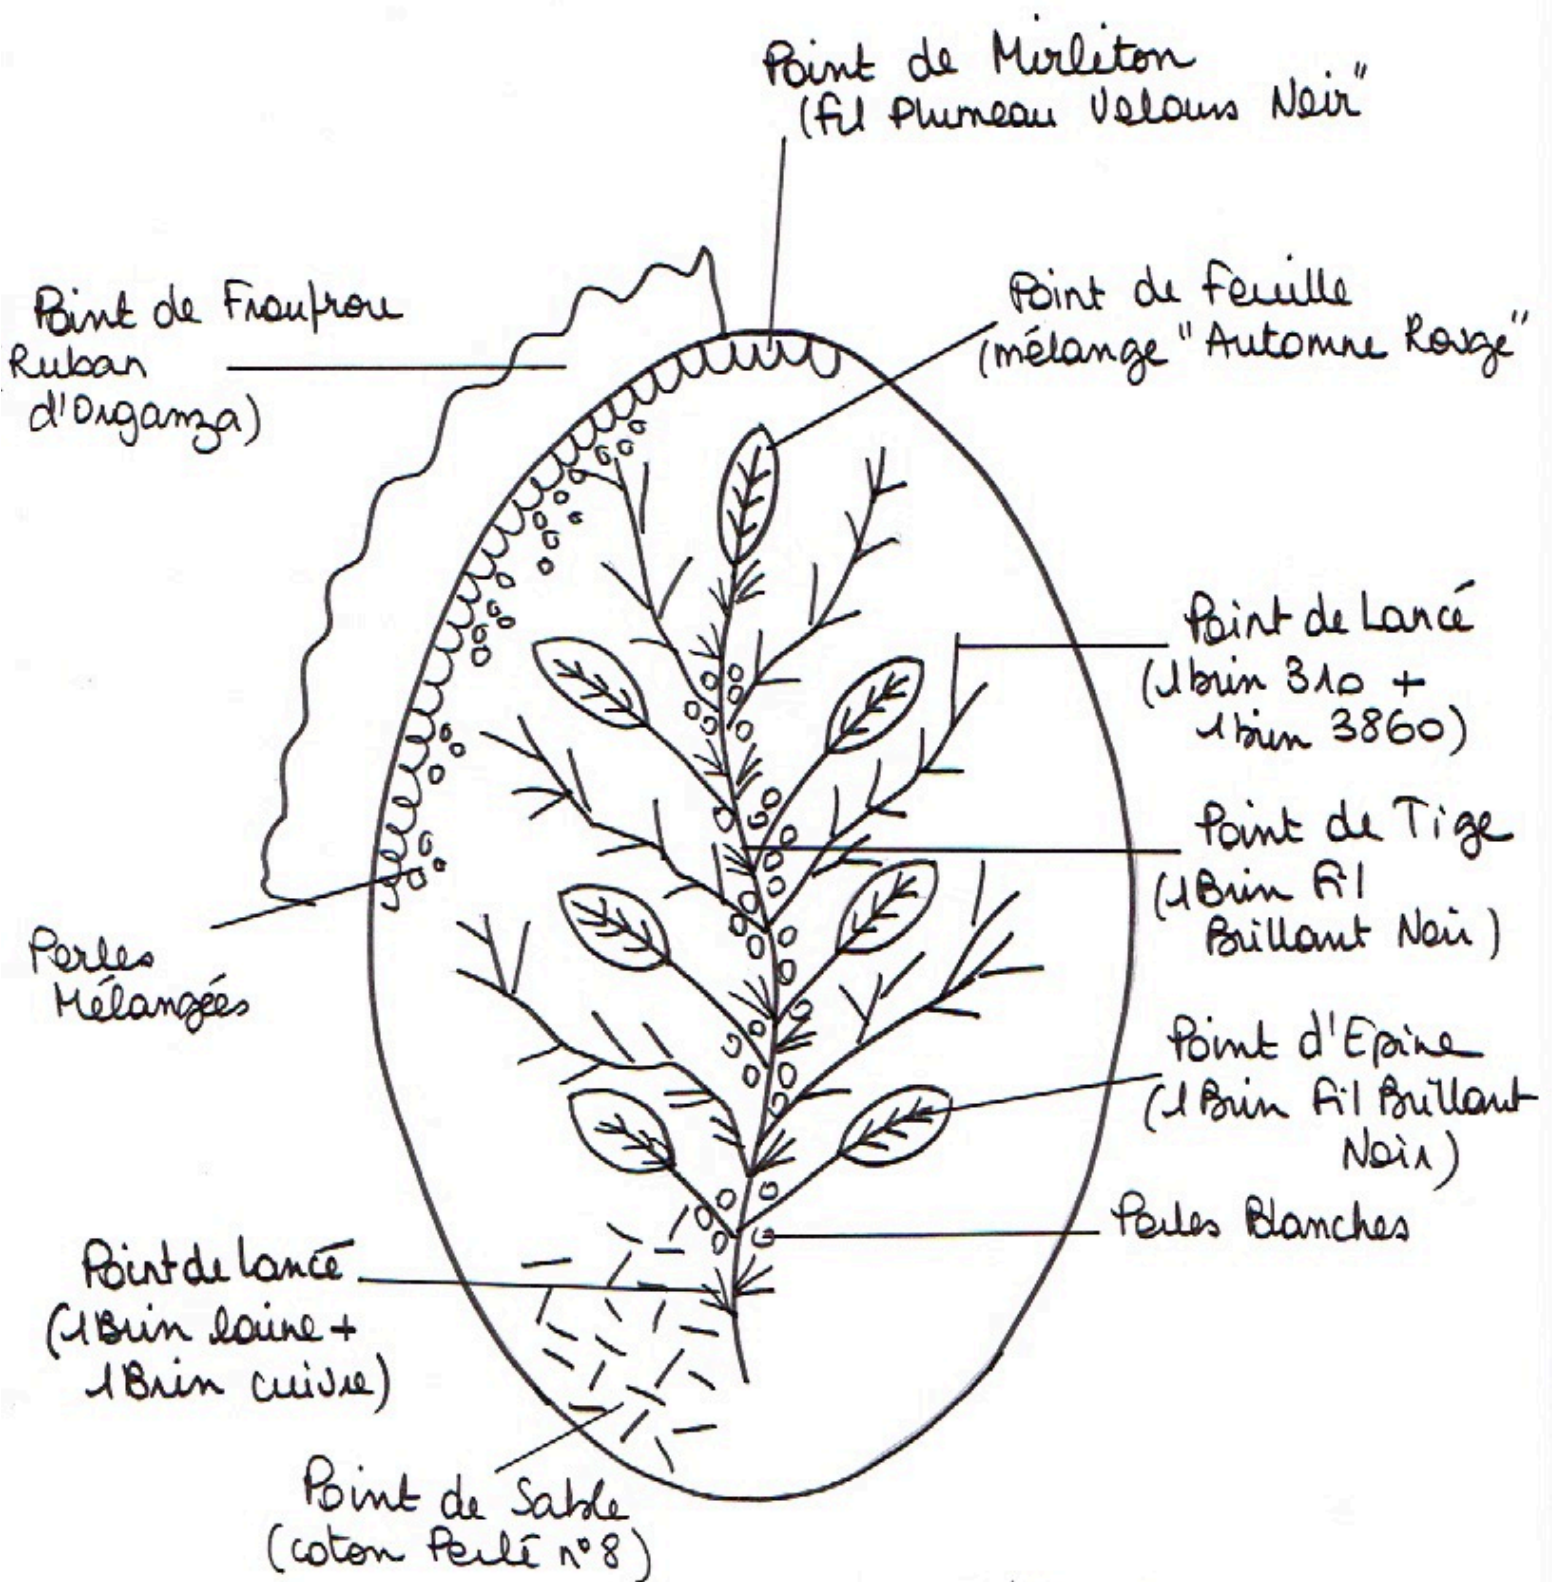 Point de Mirliton
(fil Plumeau Velours Noir"
Point de Froufrou
Ruban
d'Organza)
Point de Feuille
(mélange "Automne Rouge"
Point de Lancé
(1 brin 310 +
1 brin 3860)
Point de Tige
(1 Brin Fil
Brillant Noir)
Perles
Mélangées
Point d'Epine
(1 Brin Fil Brillant
Noir)
Perles Blanches
Point de Lancé
(1 Brin laine +
1 Brin cuivre)
Point de Sable
(coton Perlé n°8)